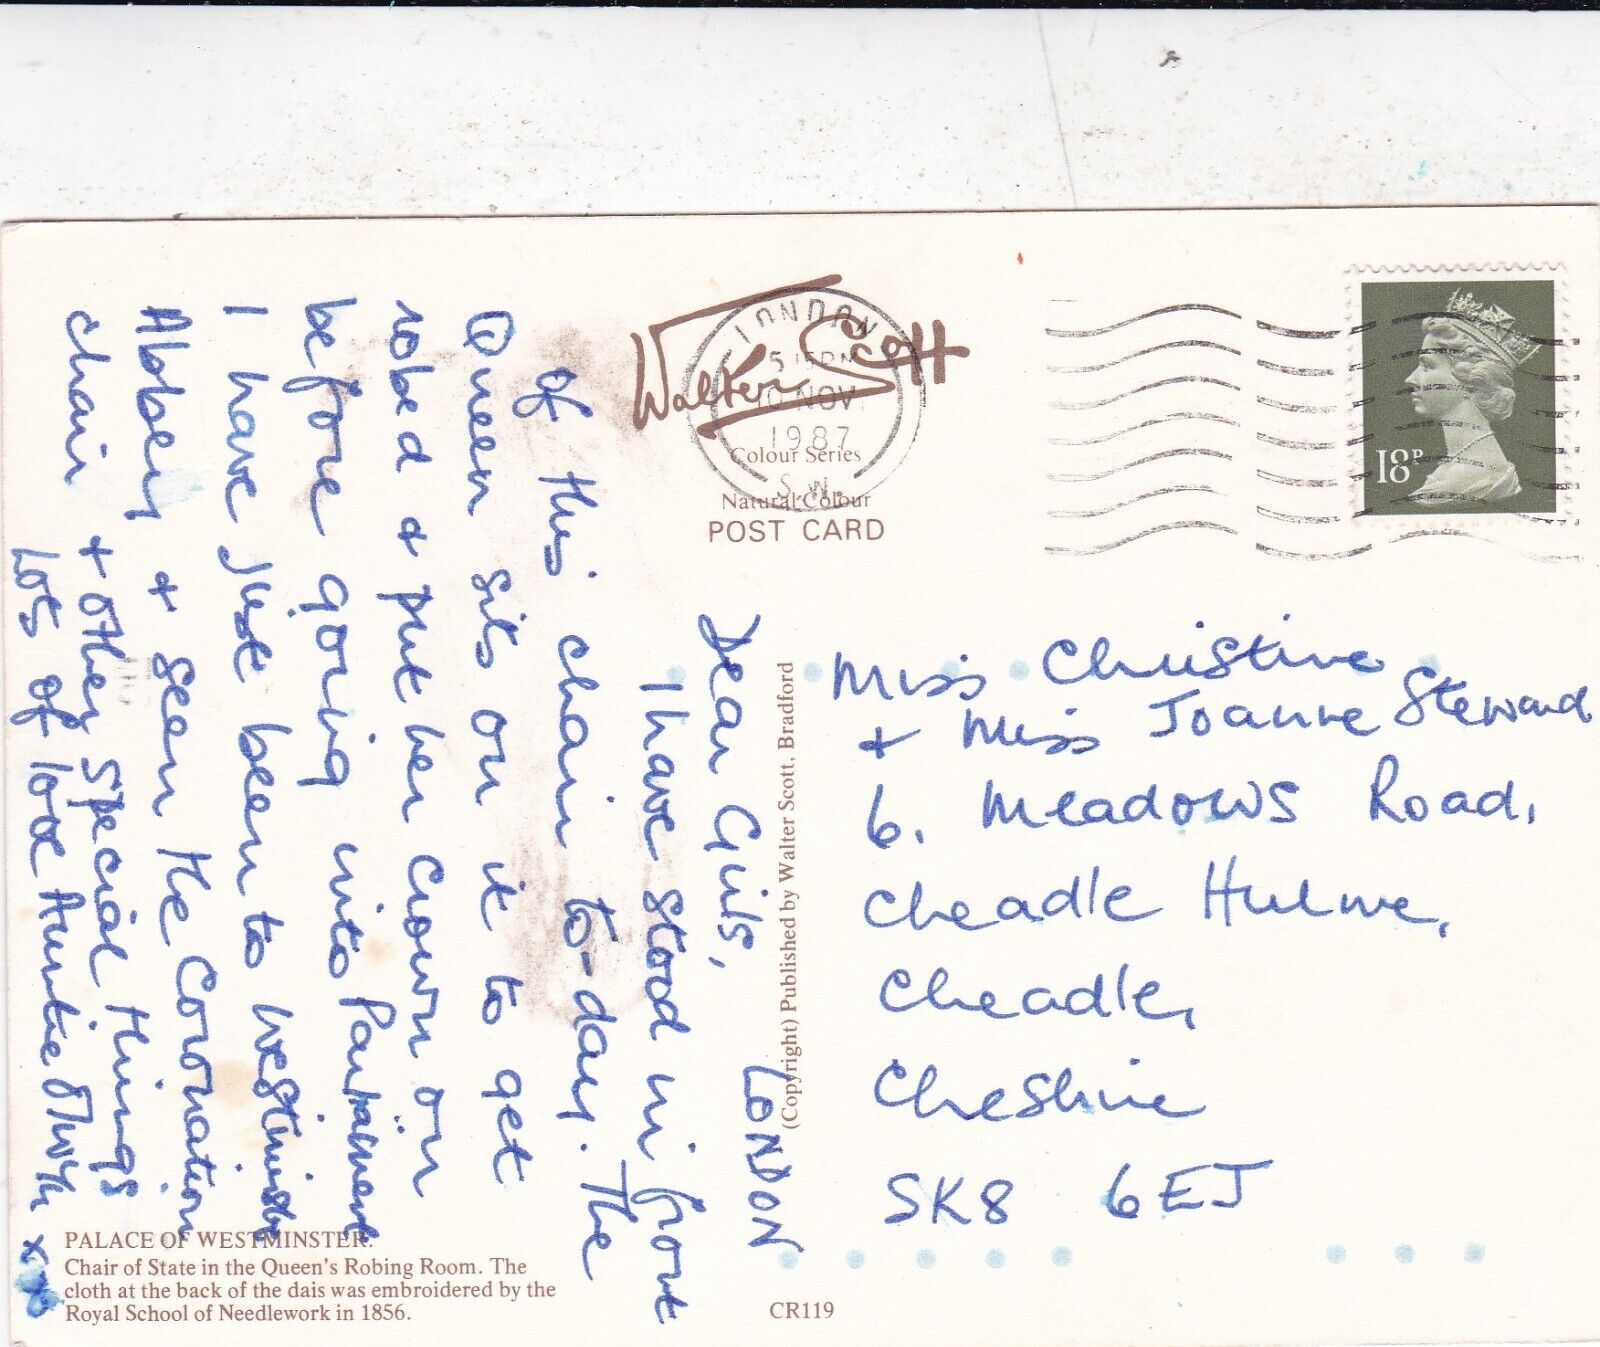 LONDON
Dear Girls,
I have stood in front
of this chair to-day. The
Queen sits on it to get
robed + put her crown on
before going into Parliament
I have just been to Westminster
Abbey + seen the Coronation
chair + other special things
Lots of love Auntie
xxx
Walter Scott
Colour Series
Natural Colour
POST CARD
LONDON
10 NOV
1987
S.W.
18P
Miss Christine
+ Miss Joanne Steward
6. Meadows Road,
Cheadle Hulme,
Cheadle,
Cheshire
SK8 6EJ
(Copyright) Published by Walter Scott, Bradford
PALACE OF WESTMINSTER.
Chair of State in the Queen's Robing Room. The
cloth at the back of the dais was embroidered by the
Royal School of Needlework in 1856.
CR119